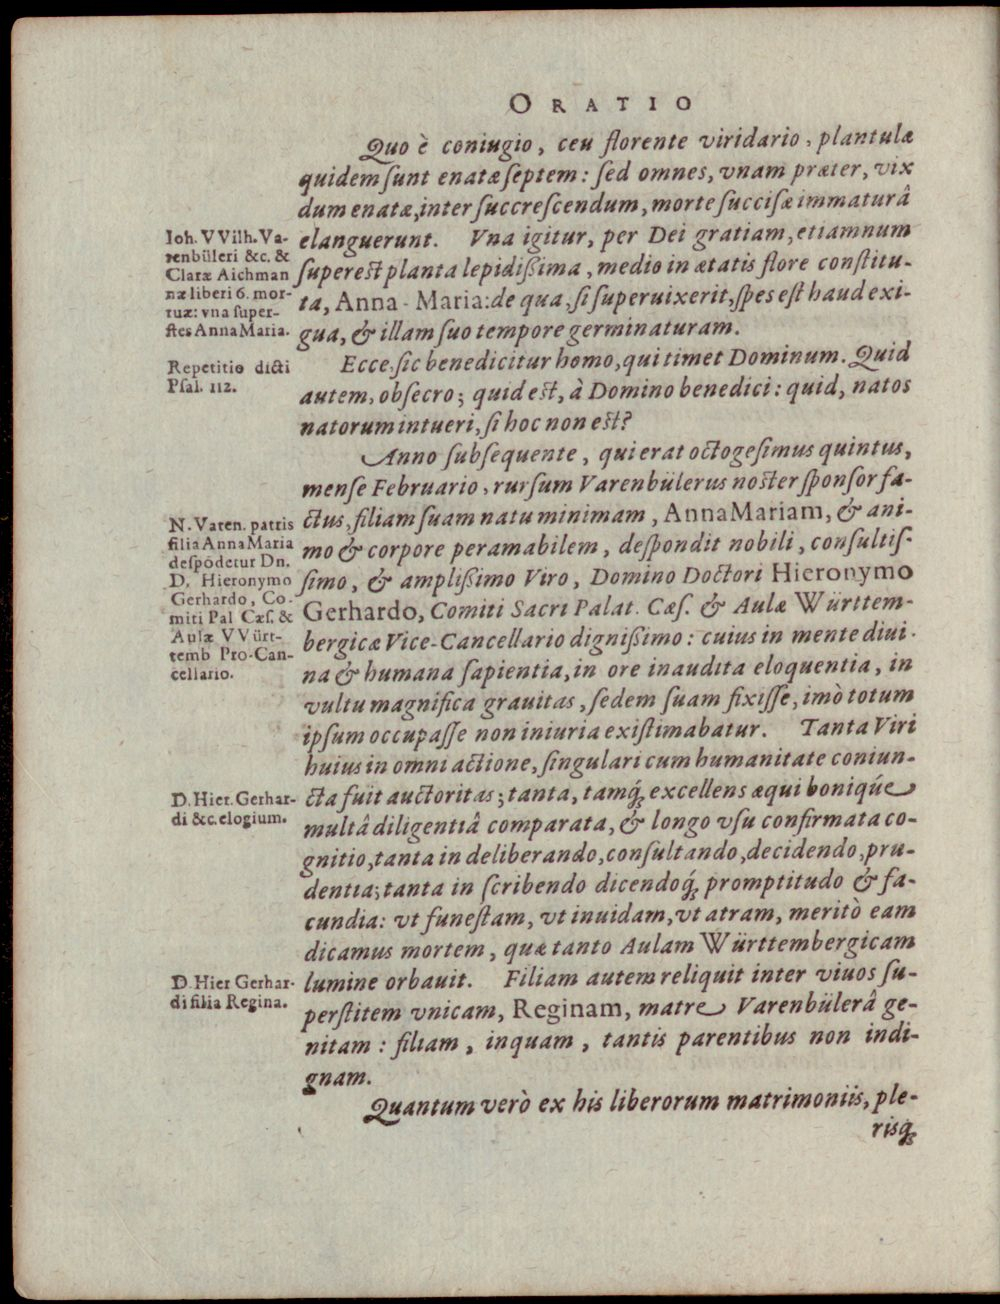 ORATIO
Quo è coniugio, ceu florente viridario, plantulæ
quidem ſunt enatæ ſeptem: ſed omnes, vnam præter, vix
dum enatæ, inter ſuccreſcendum, morte ſucciſæ immaturâ
elanguerunt. Vna igitur, per Dei gratiam, etiamnum
ſupereſt planta lepidißima, medio in ætatis flore conſtitu-
ta, Anna-Maria: de qua, ſi ſuperuixerit, ſpes eſt haud exi-
gua, & illam ſuo tempore germinaturam.
Ioh. VVilh. Va-
renbüleri &c. &
Claræ Aichman
næ liberi 6. mor-
tuæ: vna ſuper-
ſtes Anna Maria.
Ecce, ſic benedicitur homo, qui timet Dominum. Quid
autem, obſecro; quid eſt, à Domino benedici: quid, natos
natorum intueri, ſi hoc non eſt?
Repetitio dicti
Pſal. 112.
Anno ſubſequente, qui erat octogeſimus quintus,
menſe Februario, rurſum Varenbülerus noſter ſponſor fa-
ctus, filiam ſuam natu minimam, Anna Mariam, & ani-
mo & corpore peramabilem, deſpondit nobili, conſultiſ-
ſimo, & amplißimo Viro, Domino Doctori Hieronymo
Gerhardo, Comiti Sacri Palat. Cæſ. & Aulæ Württem-
bergicæ Vice-Cancellario dignißimo: cuius in mente diui-
na & humana ſapientia, in ore inaudita eloquentia, in
vultu magnifica grauitas, ſedem ſuam fixiſſe, imò totum
ipſum occupaſſe non iniuria exiſtimabatur. Tanta Viri
huius in omni actione, ſingulari cum humanitate coniun-
cta fuit auctoritas; tanta, tamq́; excellens æqui bonique
multâ diligentiâ comparata, & longo vſu confirmata co-
gnitio, tanta in deliberando, conſultando, decidendo, pru-
dentia; tanta in ſcribendo dicendoq́; promptitudo & fa-
cundia: vt funeſtam, vt inuidam, vt atram, meritò eam
dicamus mortem, quæ tanto Aulam Württembergicam
lumine orbauit. Filiam autem reliquit inter viuos ſu-
perſtitem vnicam, Reginam, matre Varenbülerâ ge-
nitam: filiam, inquam, tantis parentibus non indi-
gnam.
N. Varen. patris
filia Anna Maria
deſpōdetur Dn.
D. Hieronymo
Gerhardo, Co-
miti Pal Cæſ. &
Aulæ VVürt-
temb Pro-Can-
cellario.
D. Hier. Gerhar-
di &c. elogium.
D. Hier Gerhar-
di filia Regina.
Quantum verò ex his liberorum matrimoniis, ple-
risq;